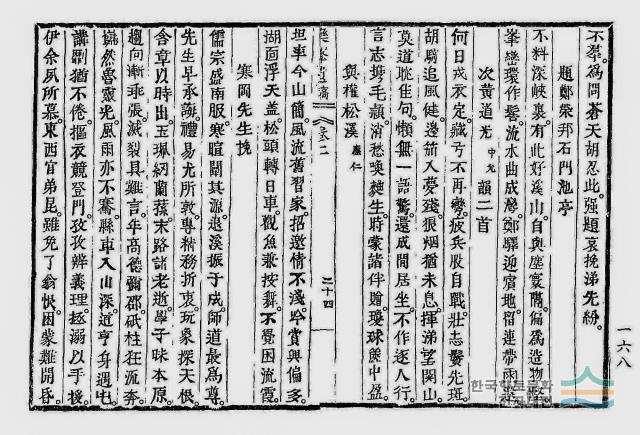 不羣爲問蒼天胡忍此强題哀挽涕先紛
題鄭榮邦石門池亭
不料深峽裏有此好溪山自與塵寰隔偏爲造物
巒環作髻流水曲成灣鄭驛迎賓地留連帶雨
次黃道光中允韻二首
何日戎衣定藏弓不再彎疲兵股自戰壯志鬢先斑
胡騎追風健邊笳入夢殘狼烟猶未息揮涕望關山
莫道耽佳句慵無一語驚還成閒居坐不作逐人行
言志塘毛穎消愁喚麴生時蒙諧伴贈瓊球篋中盈
與權松溪慶仁
坦率今山簡風流舊習家招邀情不淺吟賞興偏多
湖面浮天盖松頭轉日車觀魚兼按舞不覺困流霞
寒岡先生挽
儒宗盛南服寒暄闢其派退溪振于成師道最爲尊
先生早承誨禮易尤所敦專精務折衷玩象探天根
含章以時出玉珮紉蘭蓀末路諸老逝學子昧本原
趨向漸乖張滅裂具難言年高德彌邵砥柱狂流奔
巋然魯靈光風雨亦不騫縣車入山深道亨身遇屯
講劘猶不倦摳衣競登門孜孜辨義理拯溺以手援
伊余夙所慕東西官弟昆雖免了翁恨困蒙難開昏
卷二
二十四
一六八
한국학호남진흥원